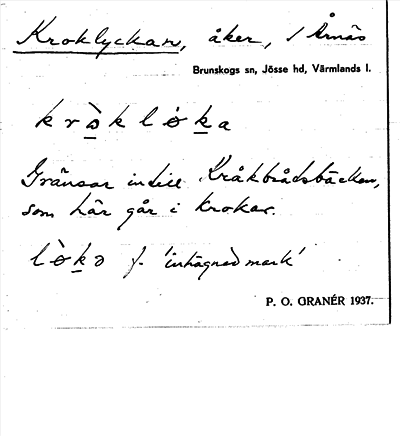 Kroklyckan, åker, / Årnäs
Brunskogs sn, Jösse hd, Värmlands l.
Gränsar intill Kråkbråtsbäcken,
som här går i krokar.
f. 'inhägnad mark'
P. O. GRANÉR 1937.